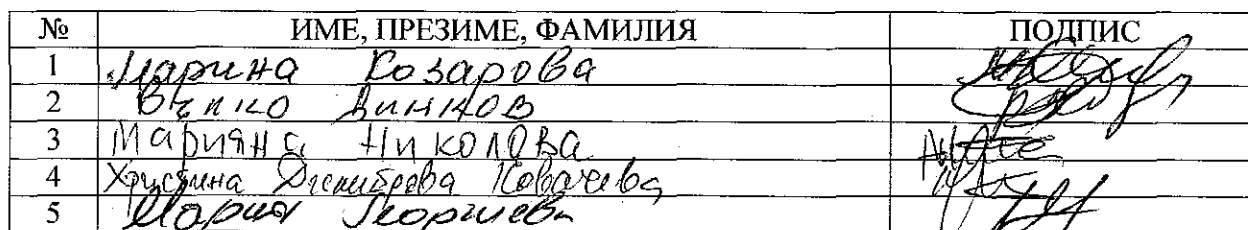 № ИМЕ, ПРЕЗИМЕ, ФАМИЛИЯ ПОДПИС
1 Марина Козарова
2 Вълко Динков
3 Марияна Николова
4 Христина Димитрова Ковачева
5 Мария Георгиева